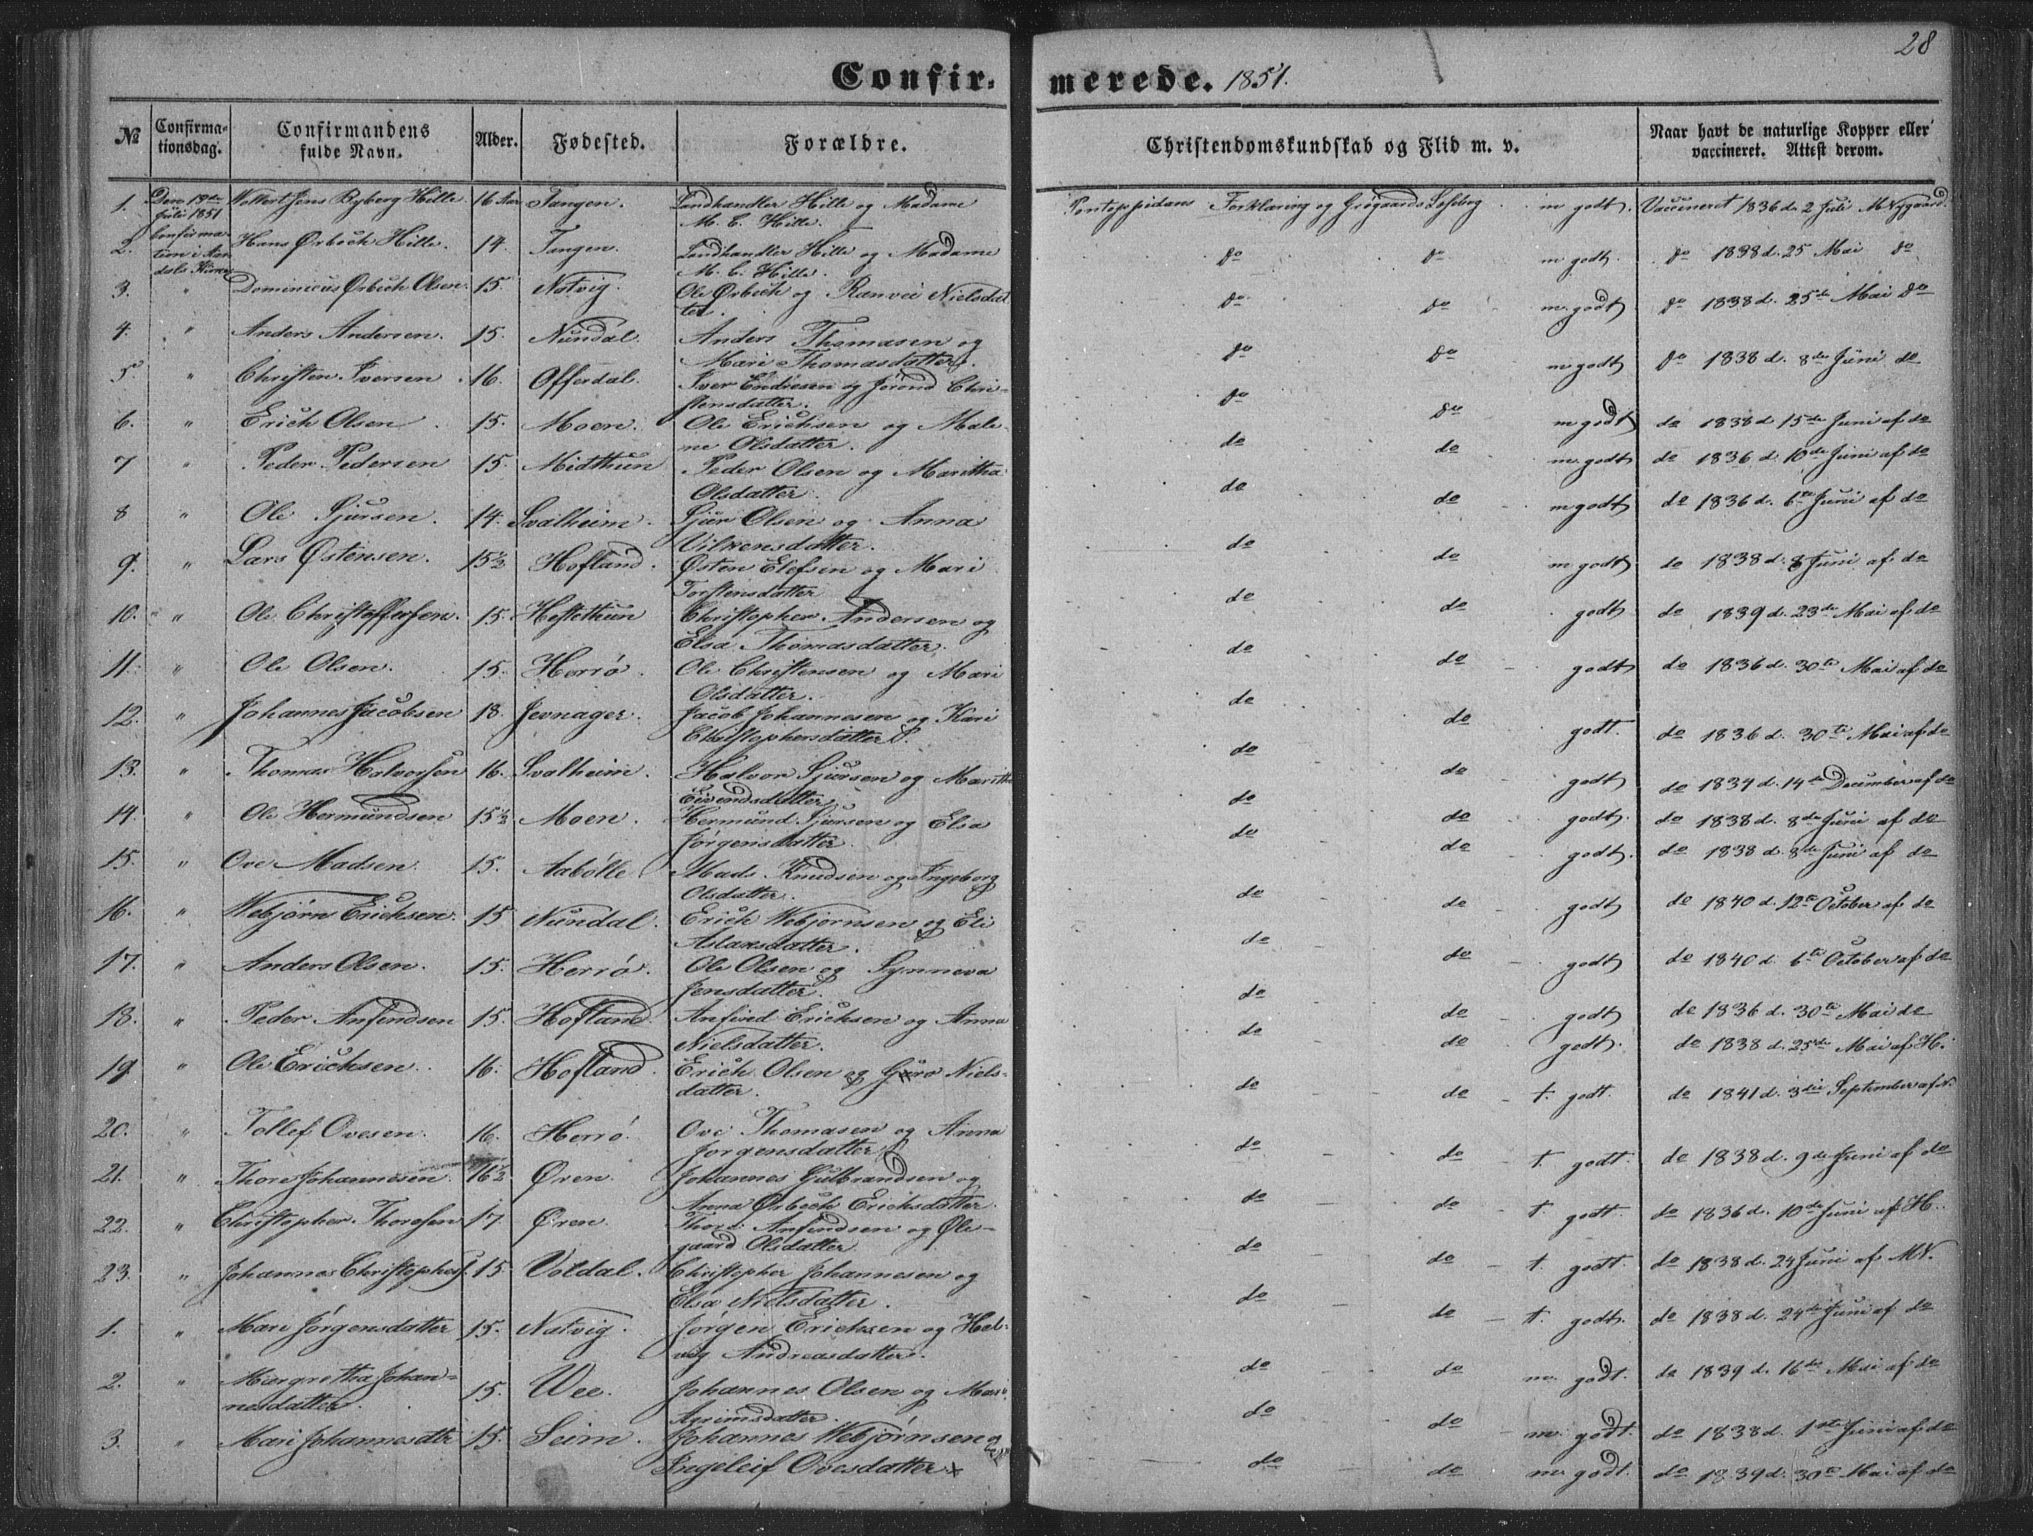 28
Confirmerede. 1851.
№ Confirmationsdag. Confirmandens fulde Navn. Alder. Fødested. Forældre. Christendomskundskab og Flid m. v. Naar havt de naturlige Kopper eller vaccineret. Attest derom.
1. Den 19de Juli 1851 Wollert Jens Byberg Hille 16 Aar Tangen. Landhandler Hille og Madame M. C. Hille. Pontoppidans Forklaring og m godt. Vaccineret 1836 d. 2 Juli
2. Confirmation i Aardals Kirke Hans Ørbech Hille. 14. Tangen. Landhandler Hille og Madame M. C. Hille. do do m godt. do 1838 d. 25 Mai do
3. " Dominicus Ørbech Olsen. 15. Natvig. Ole Ørbech og Ranvei Nielsdatter. do do m godt do 1838 d. 25de Mai do
4. " Anders Andersen. 15. Nundal. Anders Thomasen og Mari Thomasdatter. do do m godt do 1838 d. 8de Juni do
5 " Christen Iversen 16. Offerdal. Iver Endresen og Jørond Christensdatter. do do m godt do 1838 d 15de Juni af do
6. " Erich Olsen 15. Moen. Ole Erichsen og Malene Olsdatter. do do m godt do 1836 d. 10de Juni af do
7 " Peder Pedersen 15. Midthun Peder Olsen og Maritha Olsdatter. do do m godt do 1836 d. 6te Juni af do
8 " Ole Sjursen. 14. Svalheim. Sjur Olsen og Anna Vilkensdatter. do do m godt do 1838 d. 8 Juni af do
9. " Lars Østensen. 15½ Hofland. Østen Elefsen og Mari Torstensdatter do do godt do 1839 d. 23de Mai af do
10. " Ole Christoffersen. 15. Hestethun Christopher Andersen og Elsa Thomasdatter. do do godt do 1836 d. 30te Mai af do
11. " Ole Olsen. 15. Herrø. Ole Christensen og Mari Olsdatter. do do godt. do 1836 d. 30te Mai af do
12. " Johannes Jacobsen 18. Jevnager. Jacob Johannesen og Kari Christophersdatter. do do godt do 1834 d. 14de December af do
13. " Thomas Halvorsen 16. Svalheim. Halvor Sjursen og Maritha Eivendsdatter. do do godt. do 1838 d. 8de Juni af do
14. " Ole Hermundsen 15½ Moen. Hermund Sjursen og Elsa Jørgensdatter. do do godt. do 1838 d. 8de Juni af do
15. " Ove Madsen. 15. Aabølle Mads Knudsen og Ingeborg Olsdatter. do do godt do 1840 d. 12te October af do
16. " Webjørn Erichsen. 15 Nundal. Erich Webjørnsen og Eli Aslaksdatter. do do godt do 1840 d. 6te October af do
17. " Anders Olsen. 15. Herrø. Ole Olsen og Synneva Jensdatter. do do godt do 1836 d. 30te Mai do
18. " Peder Anfindsen 15. Hofland. Anfind Erichsen og Anna Nielsdatter. do do godt. do 1838 d. 25de Mai af H.
19 " Ole Erichsen. 16. Hofland. Erich Olsen og Guro Nielsdatter. do do t. godt. do 1841 d. 3die September af N.
20. " Tollef Ovesen. 16. Herrø. Ove Thomasen og Anna Jørgensdatter do do t. godt. do 1838 d. 9de Juni af do
21. " Thore Johannesen 16½ Øren. Johannes Gulbrandsen og Anna Ørbech Ericksdatter do do t. godt. do 1836 d. 10de Juni af H.
22. " Christopher Thoresen 17. Øren. Thore Anfindsen og Ølegaard Olsdatter. do do t. godt. do 1838 d. 24 Juni af MN.
23. " Johannes Christophers. 15. Voldal. Christopher Johannesen og Elsa Nielsdatter. do do t. godt. do 1838 d. 24de Juni af do
1. " Mari Jørgensdatter 15. Natvig. Jørgen Erichsen og Helvig Andreasdatter. do do m. godt. do 1839 d. 16de Mai af do
2. " Margretha Johannesdatter. 15. Wee. Johannes Olsen og Mari Agrimsdatter. do do m. godt. do 1838 d. 1ste Juni af do
3. " Mari Johannesdtr 15. Seim. Johannes Webjørnsen og Ingeleif Ovesdatter do do m. godt. do 1839 d. 30te Mai af do